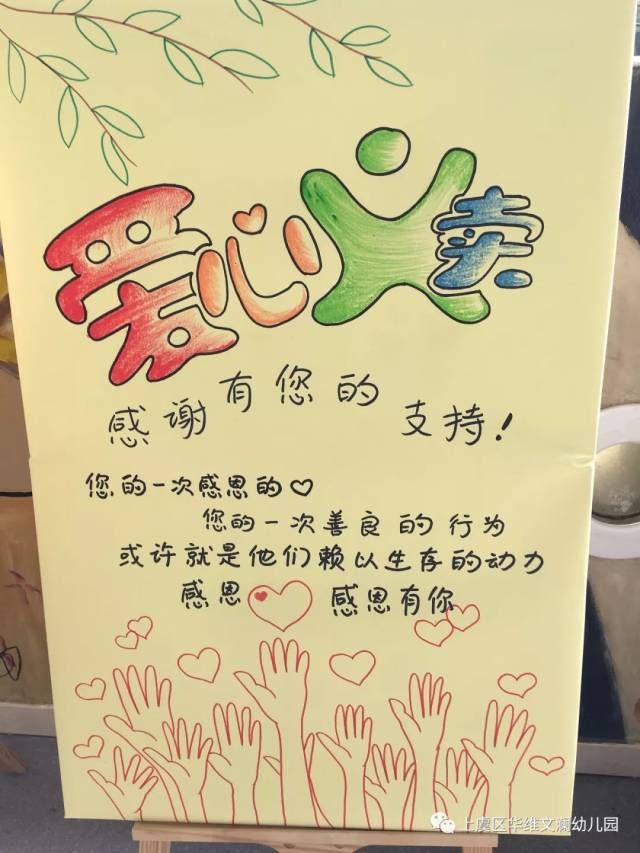 爱心义卖
感谢有您的支持!
您的一次感恩的♡
您的一次善良的行为
或许就是他们赖以生存的动力
感恩 感恩有你
上虞区华维文澜幼儿园